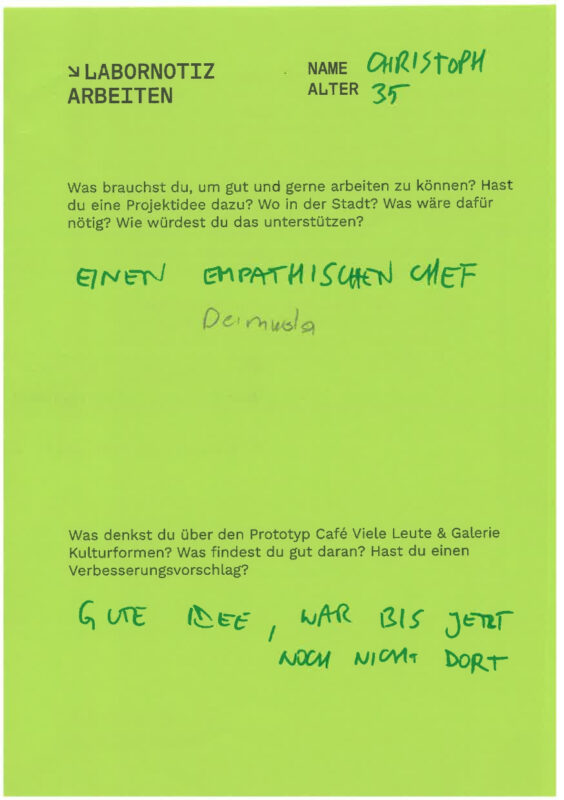 ↘ LABORNOTIZ
ARBEITEN
NAME CHRISTOPH
ALTER 35
Was brauchst du, um gut und gerne arbeiten zu können? Hast
du eine Projektidee dazu? Wo in der Stadt? Was wäre dafür
nötig? Wie würdest du das unterstützen?
EINEN EMPATHISCHEN CHEF
Was denkst du über den Prototyp Café Viele Leute & Galerie
Kulturformen? Was findest du gut daran? Hast du einen
Verbesserungsvorschlag?
GUTE IDEE, WAR BIS JETZT
NOCH NICHT DORT